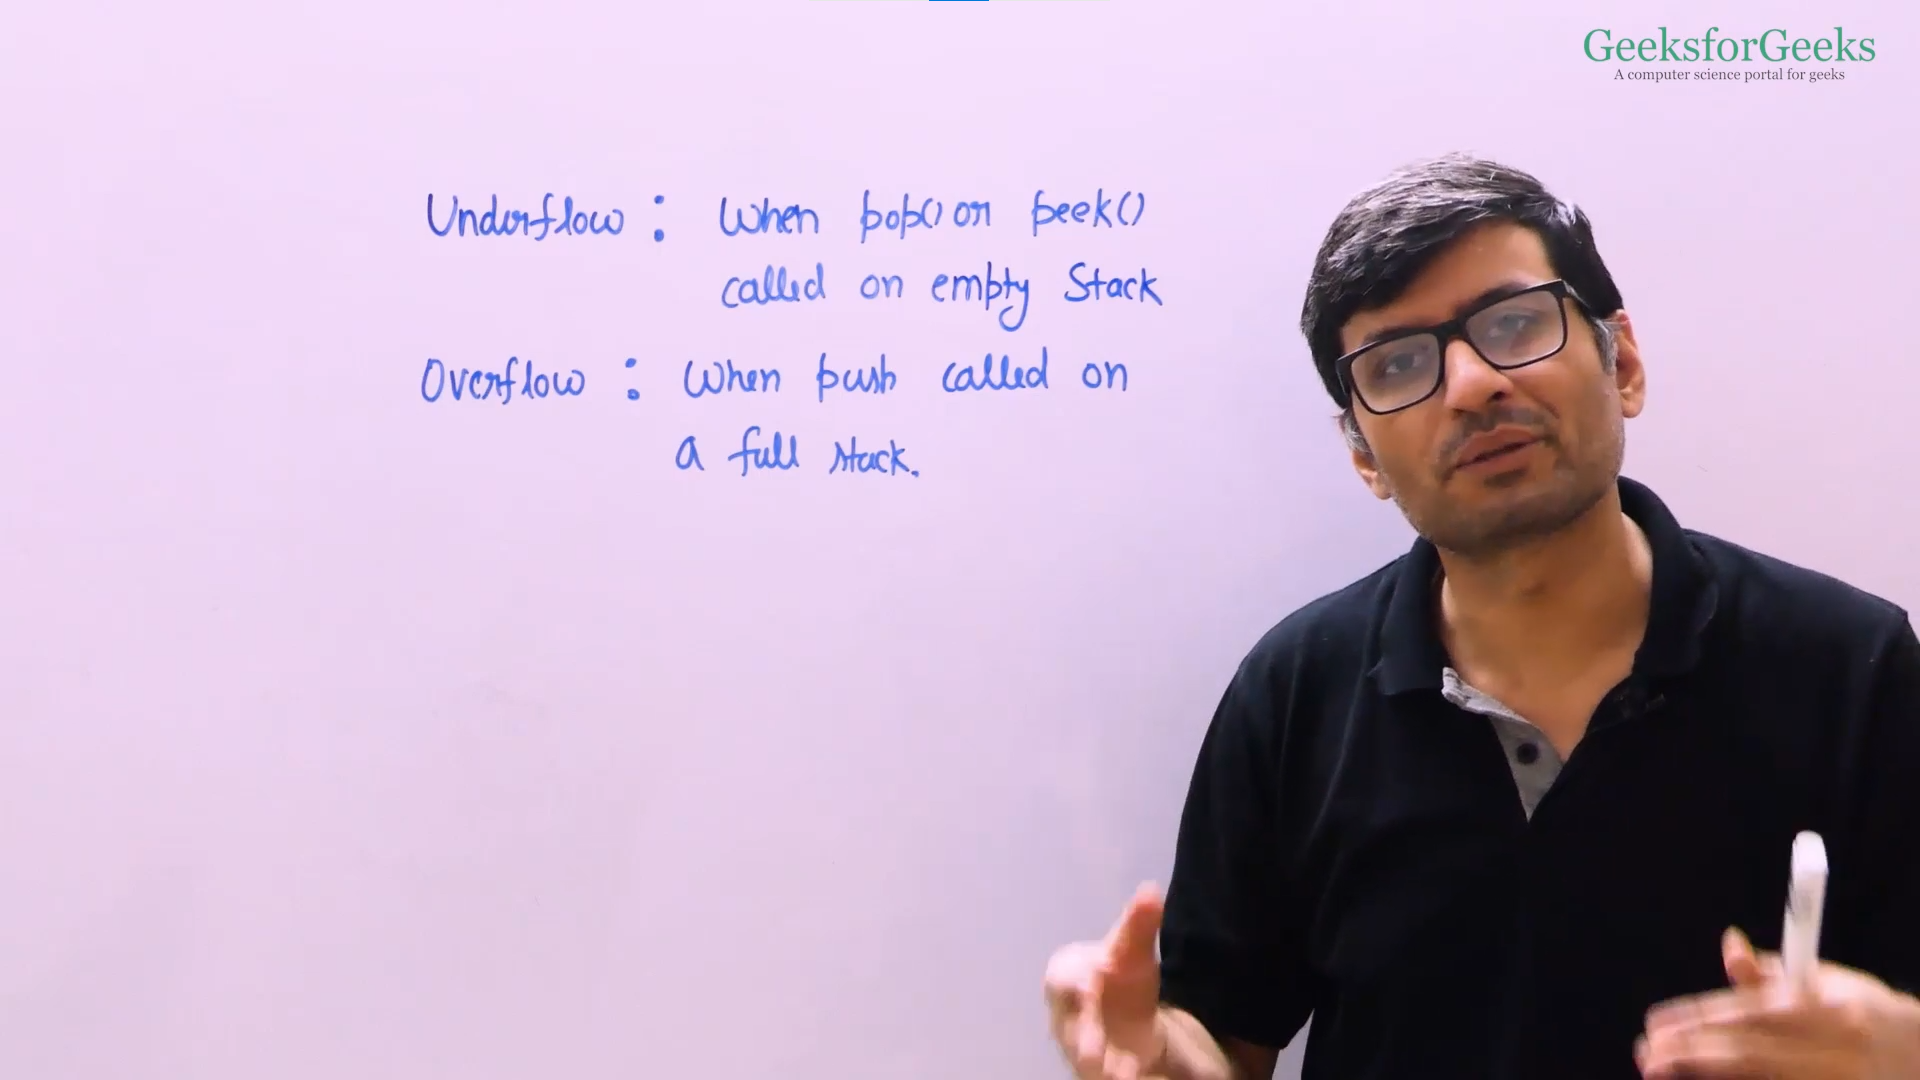 GeeksforGeeks
A computer science portal for geeks
Underflow : When pop() or peek()
called on empty Stack
Overflow : When push called on
a full stack.